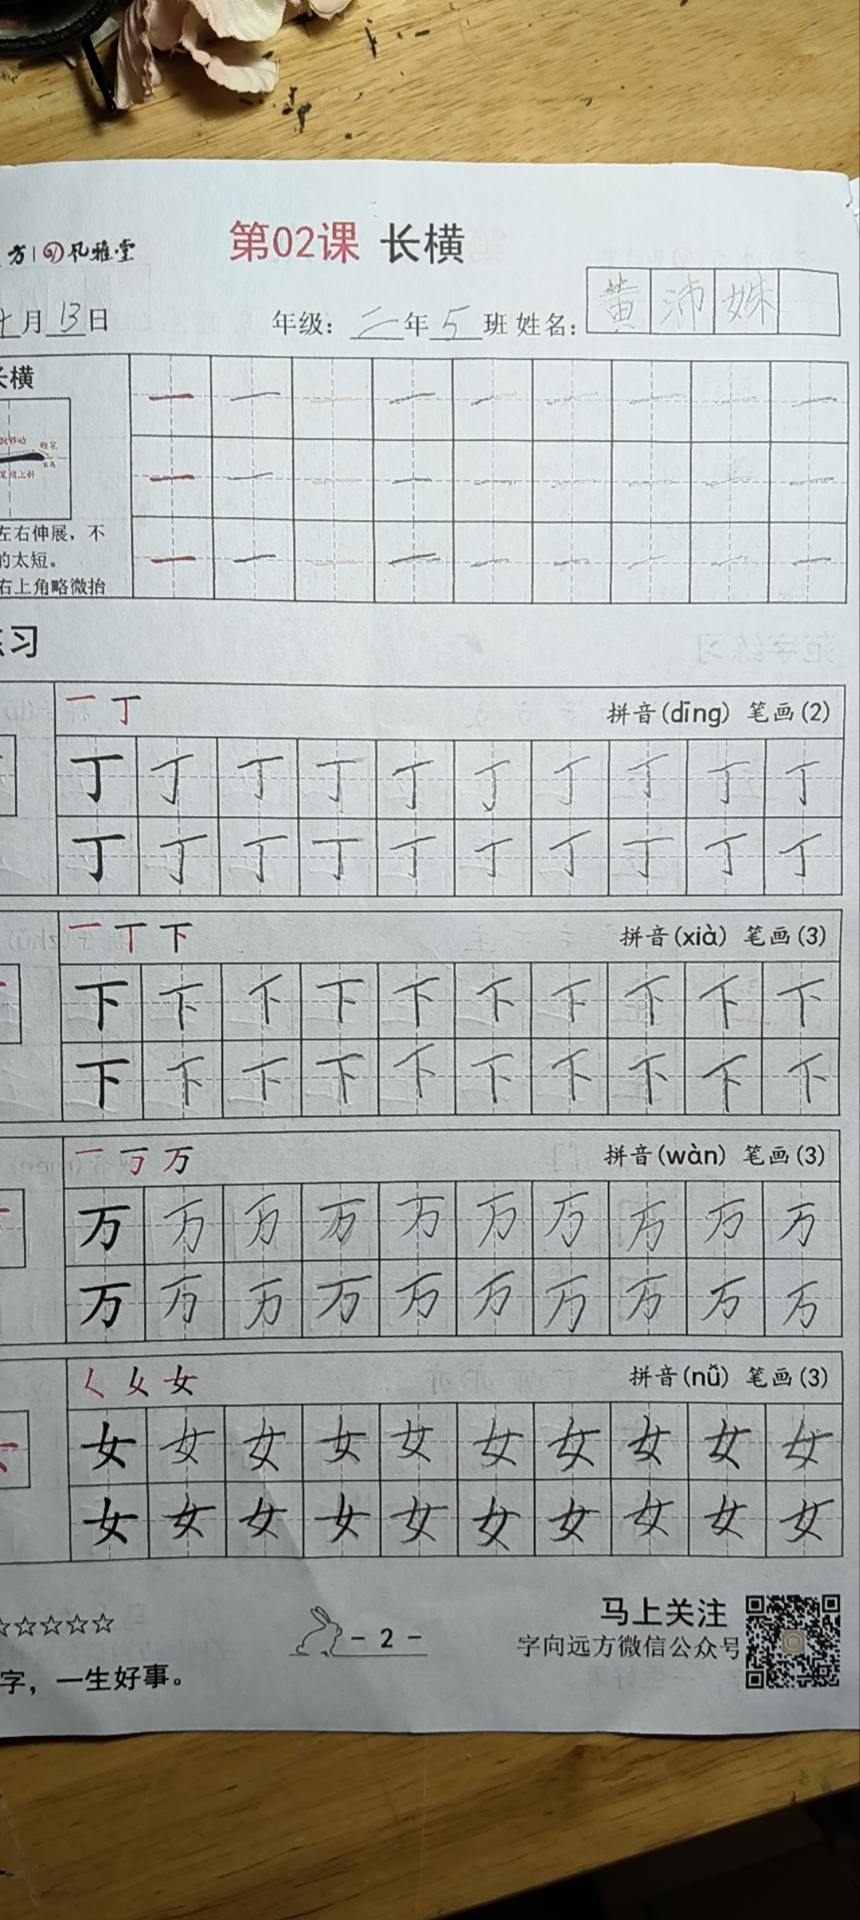 方 | 风雅堂
第02课 长横
七月13日 年级：二年5班 姓名：黄沛姝
长横
左右伸展，不
的太短。
右上角略微抬
练习
一 丁 拼音(dīng) 笔画(2)
丁 丁 丁 丁 丁 丁 丁 丁 丁 丁
丁 丁 丁 丁 丁 丁 丁 丁 丁 丁
一 丅 下 拼音(xià) 笔画(3)
下 下 下 下 下 下 下 下 下 下
下 下 下 下 下 下 下 下 下 下
一 丂 万 拼音(wàn) 笔画(3)
万 万 万 万 万 万 万 万 万 万
万 万 万 万 万 万 万 万 万 万
𡿨 女 拼音(nǚ) 笔画(3)
女 女 女 女 女 女 女 女 女 女
女 女 女 女 女 女 女 女 女 女
☆☆☆☆☆☆
字，一生好事。
- 2 -
马上关注
字向远方微信公众号